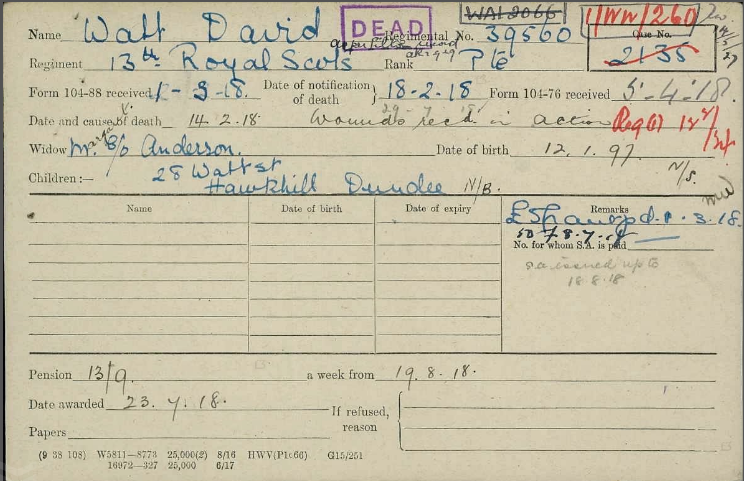 DEAD WAI 2066 1/WW/260
Name Watt David Regimental No. 39560 Case No. 2135
Regiment 13th Royal Scots Rank Pte
Form 104-88 received 1-3-18. Date of notification of death } 18-2-18 Form 104-76 received 5-4-18.
29-7-18
Date and cause of death 14.2.18. Wounds recd in action
Widow Mrs. c/o Anderson. Date of birth 12.1.97.
Children:— 28 Watt st N/S.
Hawkhill Dundee N/B.
Name Date of birth Date of expiry Remarks
3.18.
No. for whom S.A. is paid
s.a. issued up to
18.8.18
Pension 13/9. a week from 19.8.18.
Date awarded 23.7.18. If refused, reason
Papers
(9 38 108) W5811—8773 25,000(2) 8/16 HWV(P1c66) G15/251
16972—327 25,000 6/17